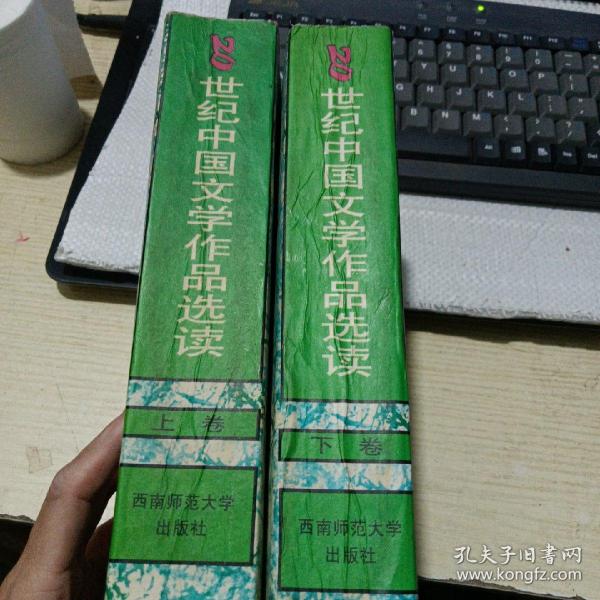 20世纪中国文学作品选读
上卷
西南师范大学
出版社
20世纪中国文学作品选读
下卷
西南师范大学
出版社
孔夫子旧书网
www.kongfz.com